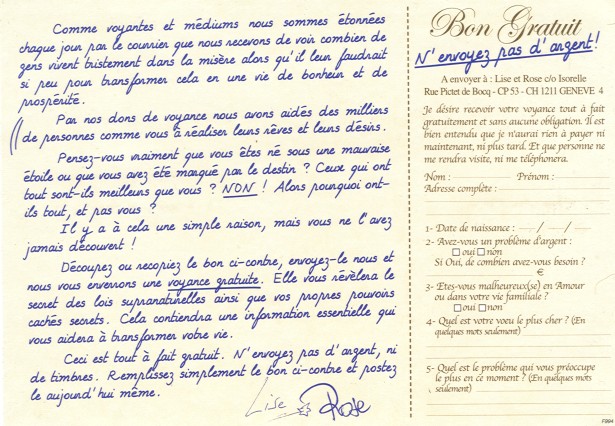 Comme voyantes et médiums nous sommes étonnées
chaque jour par le courrier que nous recevons de voir combien de
gens vivent tristement dans la misère alors qu'il leur faudrait
si peu pour transformer cela en une vie de bonheur et de
prospérité.
Par nos dons de voyance nous avons aidés des milliers
de personnes comme vous à réaliser leurs rêves et leurs désirs.
Pensez-vous vraiment que vous êtes né sous une mauvaise
étoile ou que vous avez été marqué par le destin ? Ceux qui ont
tout sont-ils meilleurs que vous ? NON ! Alors pourquoi ont-
ils tout, et pas vous ?
Il y a à cela une simple raison, mais vous ne l'avez
jamais découvert !
Découpez ou recopiez le bon ci-contre, envoyez-le nous et
nous vous enverrons une voyance gratuite. Elle vous révèlera le
secret des lois supranaturelles ainsi que vos propres pouvoirs
cachés secrets. Cela contiendra une information essentielle qui
vous aidera à transformer votre vie.
Ceci est tout à fait gratuit. N'envoyez pas d'argent, ni
de timbres. Remplissez simplement le bon ci-contre et postez
le aujourd'hui même.
Lise & Rose
Bon Gratuit
N'envoyez pas d'argent!
A envoyer à : Lise et Rose c/o Isorelle
Rue Pictet de Bocq - CP 53 - CH 1211 GENEVE 4
Je désire recevoir votre voyance tout à fait
gratuitement et sans aucune obligation. Il est
bien entendu que je n'aurai rien à payer ni
maintenant, ni plus tard. Et que personne ne
me rendra visite, ni me téléphonera.
Nom : Prénom :
Adresse complète :
1- Date de naissance : / /
2- Avez-vous un problème d'argent :
oui non
Si Oui, de combien avez-vous besoin ?
€
3- Etes-vous malheureux(se) en Amour
ou dans votre vie familiale ?
oui non
4- Quel est votre voeu le plus cher ? (En
quelques mots seulement)
5- Quel est le problème qui vous préoccupe
le plus en ce moment ? (En quelques mots
seulement)
F994